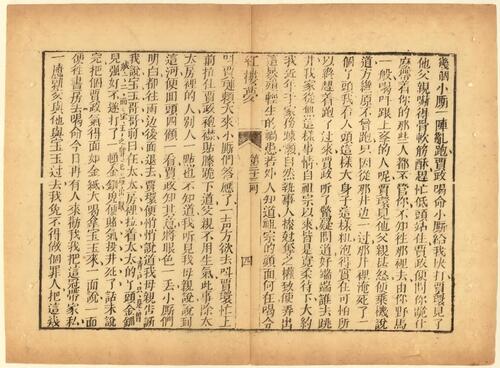 幾個小廝一陣亂跑賈政喝命小廝給我快打賈環見了
他父親嚇得骨軟筋酥趕忙低頭站住賈政便問你跑什
麽帶着你的那些人都不管你不知往那裡去由你野馬
一般喝叫跟上學的人呢賈環見他父親甚怒便乘機說
道方纔原不曾跑只因從那井邊一過那井裡淹死了一
個丫頭我看人頭這樣大身子這樣粗泡的實在可怕所
以纔趕着跑了過來賈政聽了驚疑問道好端端誰去跳
井我家從無這樣事情自祖宗以來皆是寬柔待下大約
我近年于家務疎懶自然執事人操尅奪之權致使弄出
這暴殞輕生的禍患若外人知道祖宗的顏面何在喝令
紅樓夢
第三十三回
四
叫賈璉賴大來小廝們答應了一聲方欲去叫賈環忙上
前拉住賈政袍襟貼膝跪下道父親不用生氣此事除太
太房裡的人别人一點也不知道我聽見我母親說說到
這句便回頭四顧一看賈政知其意將眼色一丢小廝們
明白都往兩邊後面退去賈環便悄悄說道我母親告訴
我說寶玉哥哥前日在太太房裡拉着太太的丫頭金釧
兒強姦不遂打了一頓金釧兒便賭氣投井死了話未說
完把個賈政氣得面如金紙大喝拿寶玉來一面說一面
便往書房去喝命今日再有人來勸我我把這冠帶家私
一應就交與他與寶玉過去我免不得做個罪人把這幾